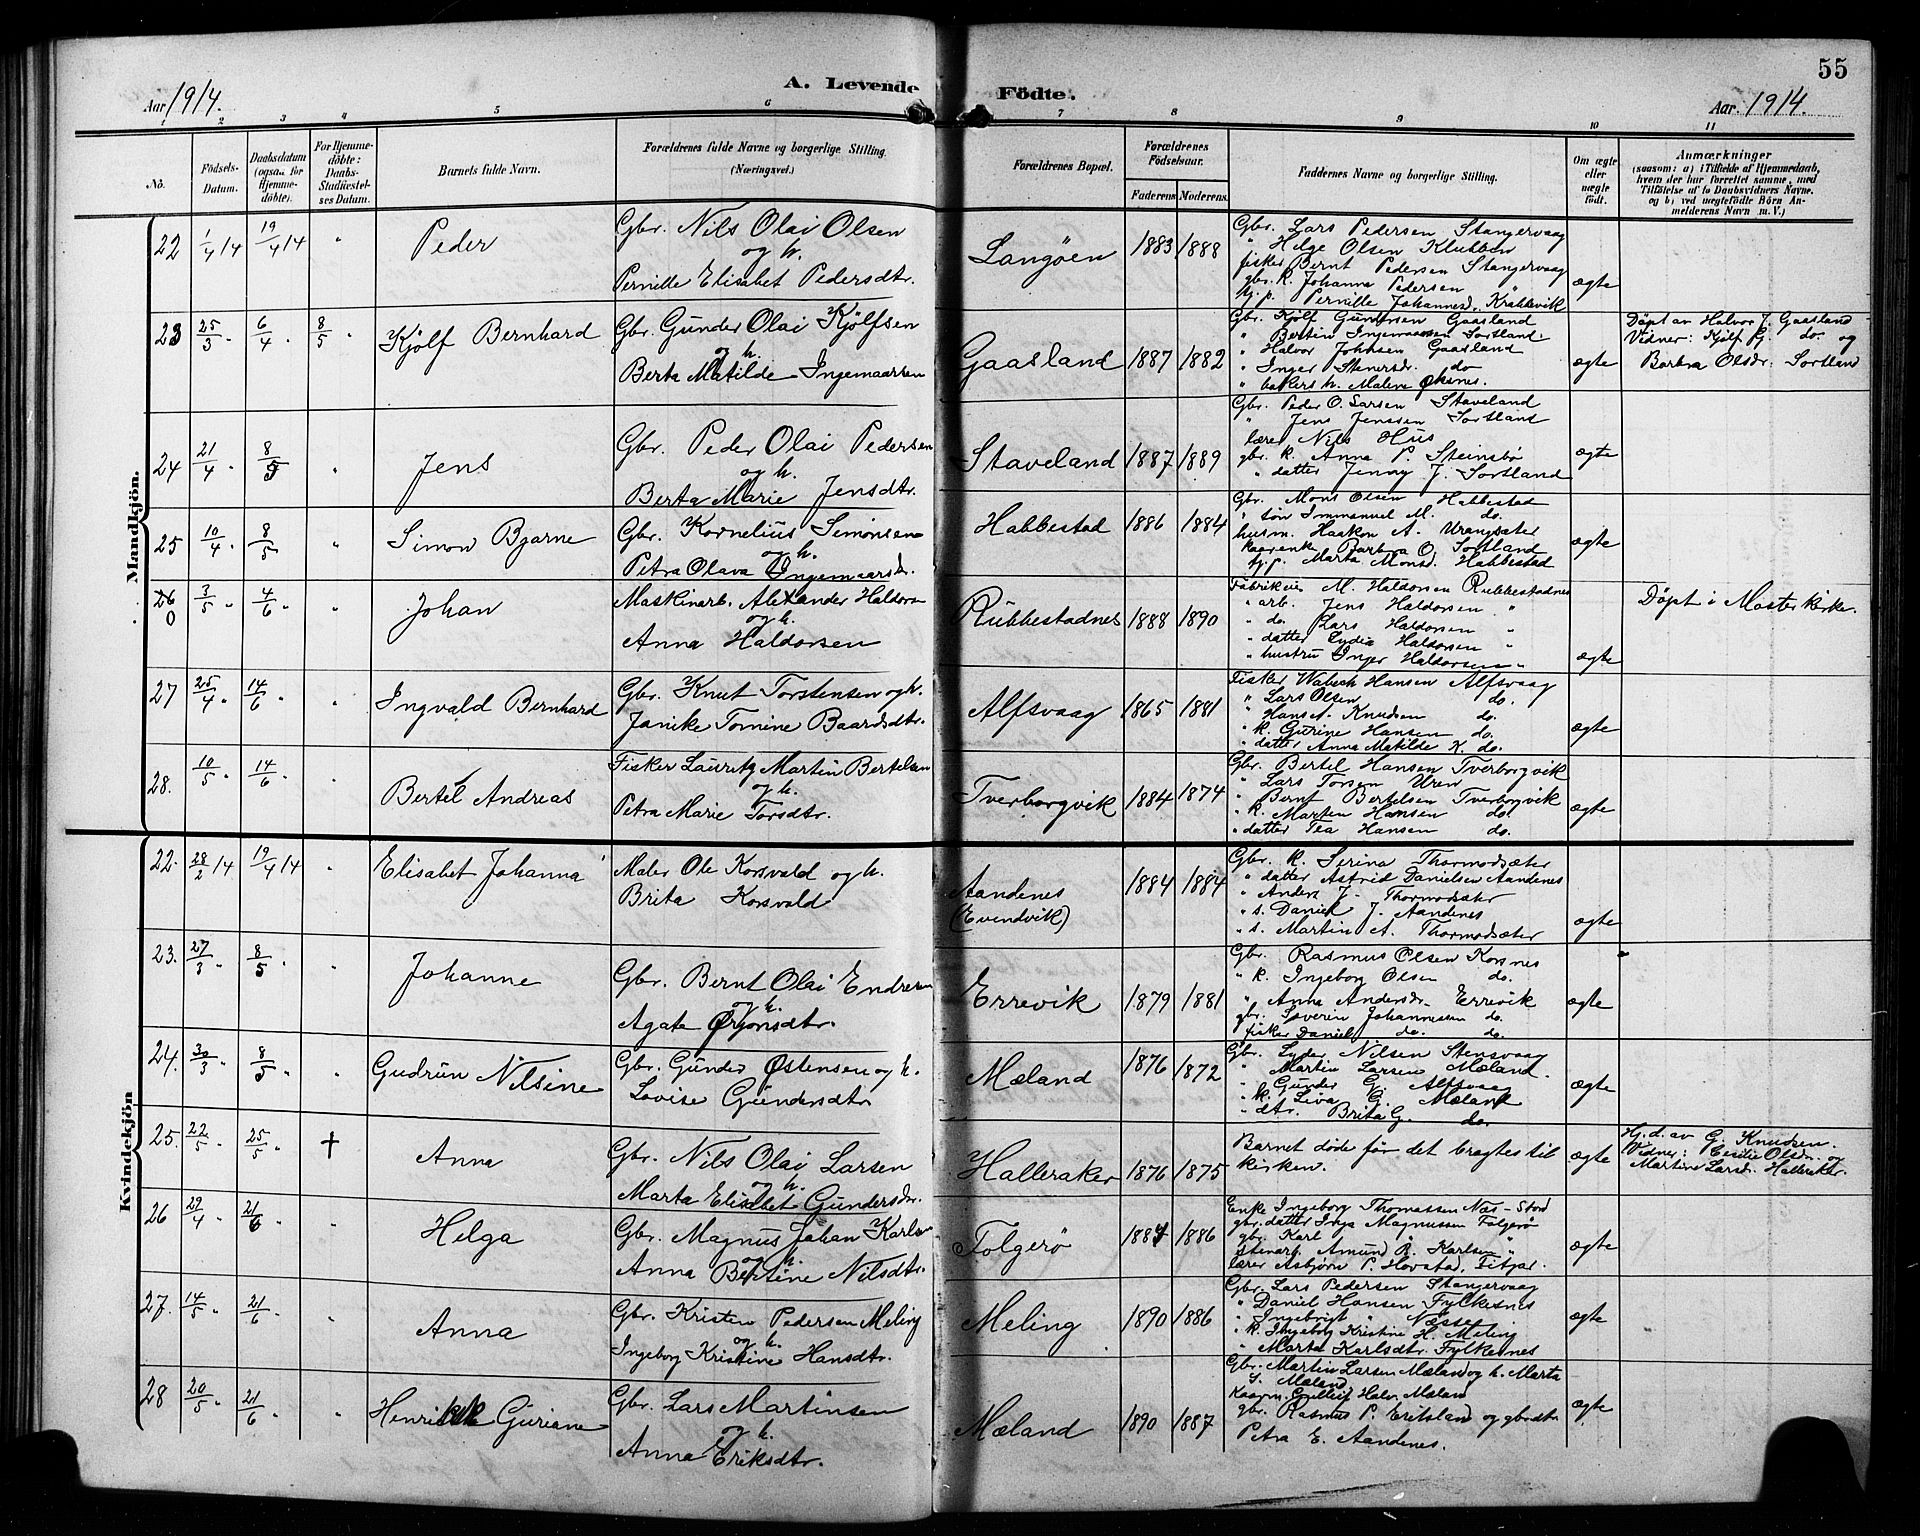 55
Aar 1914.
A. Levende Födte.
Aar. 1914.
1 2 3 4 5 6 7 8 9 10 11
No.
Födsels-Datum.
Daabsdatum (ogsaa for Hjemmedöbte).
For Hjemmedöbte: Daabs-Stadfæstelses Datum.
Barnets fulde Navn.
Forældrenes fulde Navne og borgerlige Stilling. (Næringsvei.)
Forældrenes Bopæl.
Forældrenes Födselsaar.
Faderens Moderens.
Faddernes Navne og borgerlige Stilling.
Om ægte eller uægte födt.
Anmærkninger
(saasom: a) i Tilfælde af Hjemmedaab, hvem der har forrettet samme, med Tilföielse af to Daabsvidners Navne, og b) ved uægtefödte Börn Anmelderens Navn m. V.)
Mandkjön.
22 1/4 14 19/4 14 "
Peder
Gbr. Nils Olai Olsen
og h.
Pernille Elisabet Pedersdtr.
Langöen 1883 1888
Gbr. Lars Pedersen Stangervaag
" Helge Olsen Klubben
fisker Bernt Pedersen Stangervaag
gbr. k. Johanna Pedersen "
tj. p. Pernille Johannesd. Krabbevik
ægte
23 25/3 6/4 8/5 "
Kjölf Bernhard
Gbr. Gunder Olai Kjölfsen
og h.
Berta Matilde Ingemaarsen
Gaasland 1887 1882
Gbr. Kjölf Gundersen Gaasland
" Bertin Ingemaarsen Sortland
" Halvor Johnsen Gaasland
" Inger Stenersdr. do
" bakers h. Malene Öksnes.
ægte
Döpt av Halvor J. Gaasland
Vidner: Kjölf G. do. og
Barbra Olsdr. Sortland
24 21/4 " 8/5 "
Jens
Gbr. Peder Olai Pedersen
og h.
Berta Marie Jensdtr.
Staveland 1887 1889
Gbr. Peder O. Larsen Staveland
" Jens Jenssen Sortland
lærer Nils Hus
gbr. k. Anna P. Steinsbö
" datter Jenny J. Sortland
ægte
25 10/4 " 8/5 "
Simon Bjarne
Gbr. Kornelius Simonsen
og h.
Petra Olava Ingemaarsdr.
Habbestad 1886 1884
Gbr. Mons Olsen Habbestad
" sön Immanuel M. do.
husm. Haakon A. Urangsæter
kaarenke Barbra O. Sortland
tj. p. Marta Monsd. Habbestad
ægte
26 3/5 " 4/6 " "
Johan
Maskinarb. Alexander Haldorsen
og h.
Anna Haldorsen
Rubbestadnes 1888 1890
Fabrikeier M. Haldorsen Rubbestadnes
" arb. Jens Haldorsen "
" do. Lars Haldorsen "
" datter Lydia Haldorsen "
" hustru Inger Haldorsen "
ægte
Döpt i Moster kirke.
27 25/4 " 14/6 " "
Ingvald Bernhard
Gbr. Knut Torstensen og h.
Janike Tomine Baardsdtr.
Alfsvaag 1865 1881
Fisker Wabech Hansen Alfsvaag
" Lars Olsen do.
" Hans A. Knudsen do.
" k. Gurine Hansen do.
" datter Anna Matilde K. do.
ægte
28. 10/5 " 14/6 " "
Bertel Andreas
Fisker Lauritz Martin Bertelsen
og h.
Petra Marie Torsdtr.
Tverborgvik 1884 1874
Gbr. Bertel Hansen Tverborgvik
" Lars Torsen Uren
" Bernt Bertelsen Tverborgvik
" k. Marten Hansen do.
" datter Tea Hansen do.
ægte
Kvindekjön
22. 28/2 14 19/4 14 "
Elisabet Johanna
Maler Ole Korsvald og h.
Brita Korsvald
Aandenes
(Evendvik) 1884 1884
Gbr. k. Serina Thormodsæter
" datter Astrid Danielsen Aandenes
" Anders J. Thormodsæter
" s. Daniel J. Aandenes
" s. Martin A. Thormodsæter
ægte
23. 27/3 " 8/5 " "
Johanne
Gbr. Bernt Olai Endresen
og h.
Agate Örjansdtr.
Errevik 1879 1881
Gbr. Rasmus Olsen Korsnes
" k. Ingeborg Olsen do.
" Anna Andersdr. Errevik
gbr. Severin Johannesen do.
fisker Daniel do. do.
ægte
24. 30/3 " 8/5 " "
Gudrun Nilsine
Gbr. Gunder Östensen og h.
Lovise Gundersdtr.
Mæland 1876 1872
Gbr. Lyder Nilsen Stensvaag
" Martin Larsen Mæland.
" Gunder G. Alfsvaag
" k. Liva G. Mæland
" dtr. Brita G. do.
ægte
25. 22/5 " 25/5 " †
Anna
Gbr. Nils Olai Larsen
og h.
Marta Elisabet Gundersdr.
Halleraker 1876 1875
Barnet döde för det bragtes til
kirken.
ægte
Hj. d. av G. Knudsen.
Vidner: Cecilie Olsdr. og
Martine Larsdr. Halleraker.
26 29/4 " 21/6 " "
Helga
Gbr. Magnus Johan Karlsen
og h.
Anna Bertine Nilsdtr.
Folgerö 1884 1886
Enke Ingeborg Thomassen Næs-Stord
gbr. datter Inga Magnussen Folgerö
gbr. Karl " "
stenarb. Amund R. Karlsen "
lærer Asbjörn P. Hovstad, Fitjar.
ægte
27. 14/5 " 21/6 " "
Anna
Gbr. Kristen Pedersen Meling
og h.
Ingeborg Kristine Hansdtr.
Meling 1890 1886
Gbr. Lars Pedersen Stangervaag
" Daniel Hansen Fylkesnes
" Ingebrigt " Næsse
" k. Ingeborg Kristine H. Meling
" Marta Karlsdtr. Fylkesnes
ægte
28 20/5 " 21/6 " "
Henrikke Guriane
Gbr. Lars Martinsen
og h.
Anna Eriksdtr.
Mæland 1890 1887
Gbr. Martin Larsen Mæland og h. Marta
Mæland
Kaarm. Gulleif Halv. Mæland
gbr. Rasmus P. Eritsland og gbr. dtr.
Petra E. Aandenes.
ægte